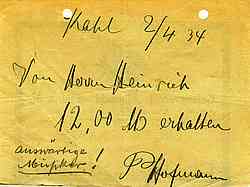 Kahl 2/4 34
Von Herrn Heinrich
12,00 M erhalten
auswärtige
Musiker! P Hofmann